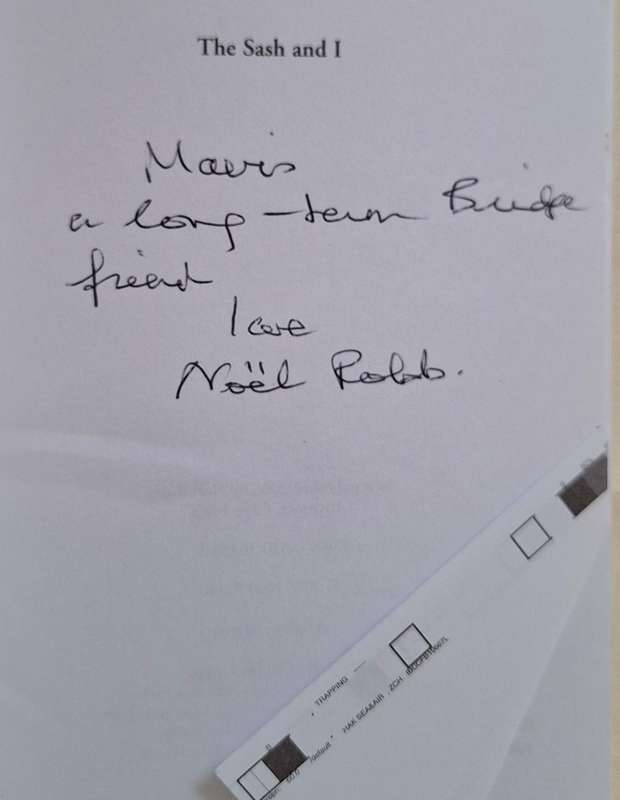 The Sash and I
Mavis
a long-term Bridge
friend
love
Noël Robb.
TRAPPING